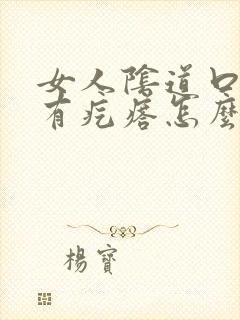 女人陰道口
有疙瘩怎麼
楊寶